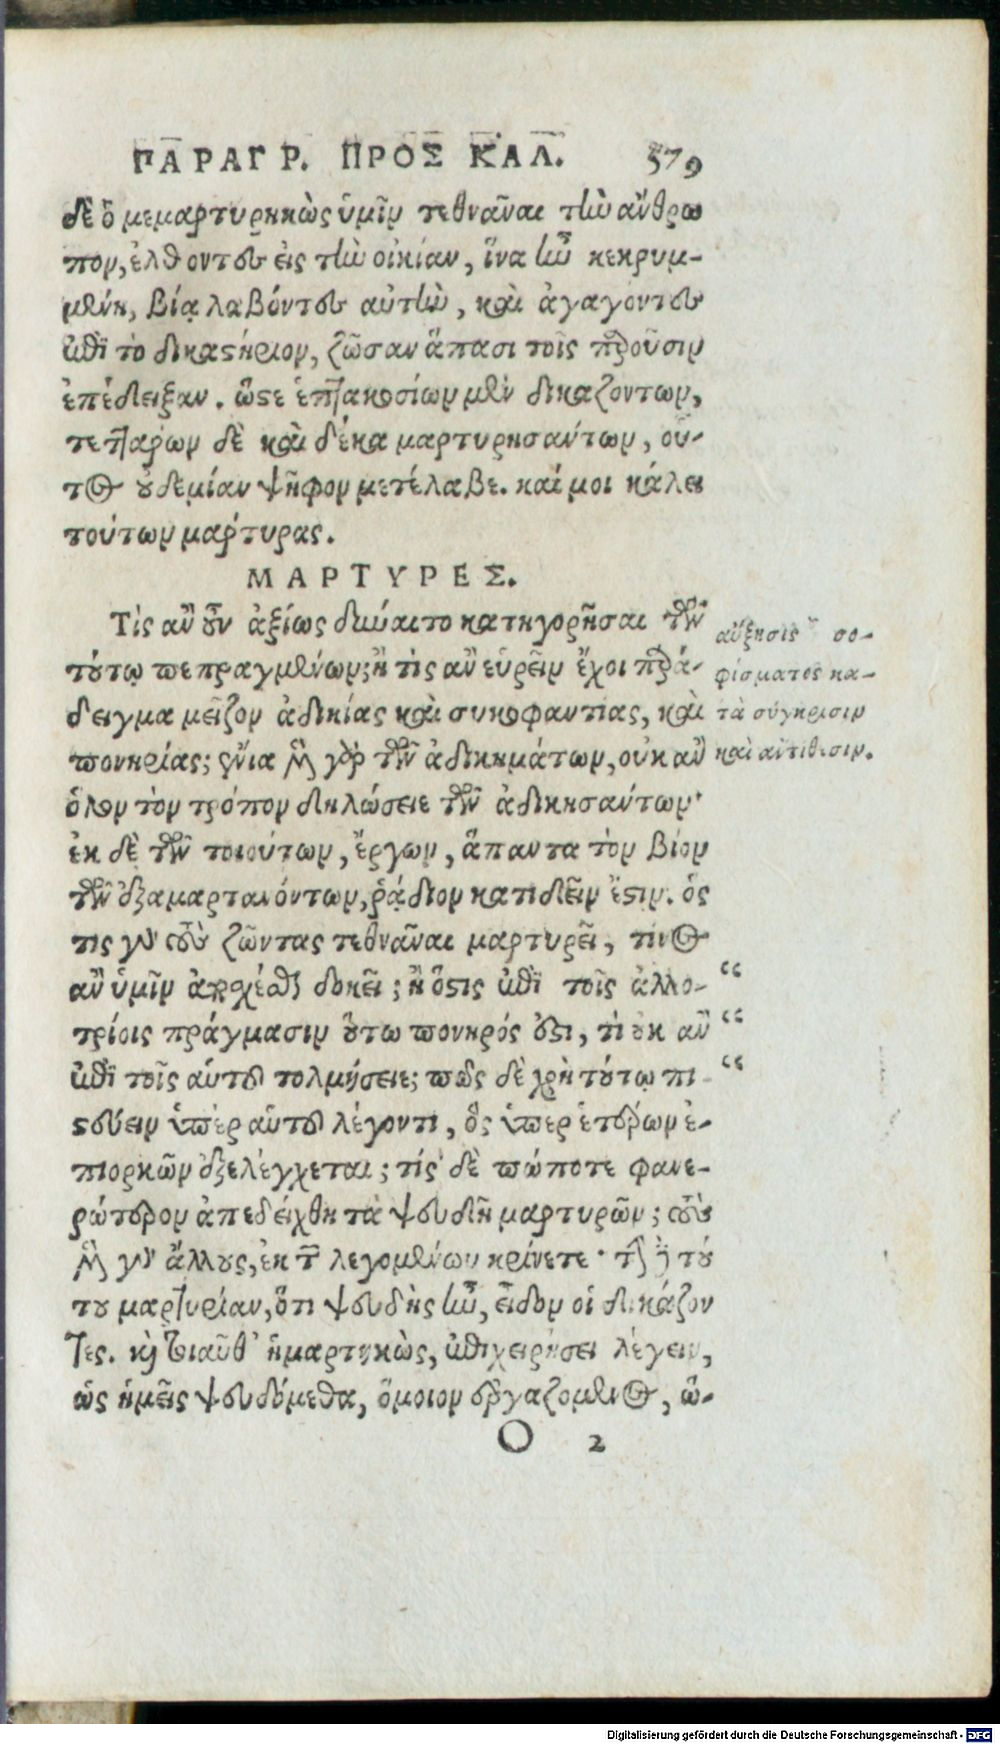 ΠΑΡΑΓΡ. ΠΡΟΣ ΚΑΛ. 579
δὲ ὃ μεμαρτυρηκὼς ὑμῖν τεθνᾶναι τὴν ἄνθρω
πον, ἐλθόντες εἰς τὴν οἰκίαν, ἵνα ἦν κεκρυμ-
μένη, βίᾳ λαβόντες αὐτὴν, καὶ ἀγαγόντες
ἐπὶ τὸ δικαστήριον, ζῶσαν ἅπασι τοῖς παροῦσιν
ἐπέδειξαν. ὥστε ἑπτακοσίων μὲν δικαζόντων,
τεττάρων δὲ καὶ δέκα μαρτυρησάντων, οὗ-
τος οὐδεμίαν ψῆφον μετέλαβε. καί μοι κάλει
τούτων μάρτυρας.
ΜΑΡΤΥΡΕΣ.
Τὶς ἂν οὖν ἀξίως δύναιτο κατηγορῆσαι τῶν
τούτῳ πεπραγμένων; ἢ τὶς ἂν εὑρεῖν ἔχοι παρά-
δειγμα μεῖζον ἀδικίας καὶ συκοφαντίας, καὶ
πονηρίας; ἔνια μὲν γὰρ τῶν ἀδικημάτων, οὐκ ἂν
ὅλον τὸν τρόπον δηλώσειε τῶν ἀδικησάντων·
ἐκ δὲ τῶν τοιούτων, ἔργων, ἅπαντα τὸν βίον
τῶν ἐξαμαρτανόντων, ῥᾴδιον κατιδεῖν ἔστιν. ὅς
τις γὰρ τοὺς ζῶντας τεθνᾶναι μαρτυρεῖ, τίνος
ἂν ὑμῖν ἀποσχέσθαι δοκεῖ; ἢ ὅστις ἐπὶ τοῖς ἀλλο- “
τρίοις πράγμασιν οὕτω πονηρός ἐστι, τὶ οὐκ ἂν “
ἐπὶ τοῖς αὑτοῦ τολμήσειε; πῶς δὲ χρὴ τούτῳ πι “
στεύειν ὑπὲρ αὑτοῦ λέγοντι, ὃς ὑπὲρ ἑτέρων ἐ-
πιορκῶν ἐξελέγχεται; τίς δὲ πώποτε φανε-
ρώτερον ἀπεδείχθη τὰ ψευδῆ μαρτυρῶν; τοὺς
μὲν γὰρ ἄλλους, ἐκ τῶν λεγομένων κρίνετε· τὴν δὲ τού
του μαρτυρίαν, ὅτι ψευδὴς ἦν, εἶδον οἱ δικάζον
τες. καὶ τοιαῦθ’ ἡμαρτηκὼς, ἐπιχειρήσει λέγειν,
ὡς ἡμεῖς ψευδόμεθα, ὅμοιον ἐργαζόμενος, ὥ-
O 2
αὔξησις σο-
φίσματος κα-
τὰ σύγκρισιν
καὶ ἀντίθεσιν.
Digitalisierung gefördert durch die Deutsche Forschungsgemeinschaft - DFG